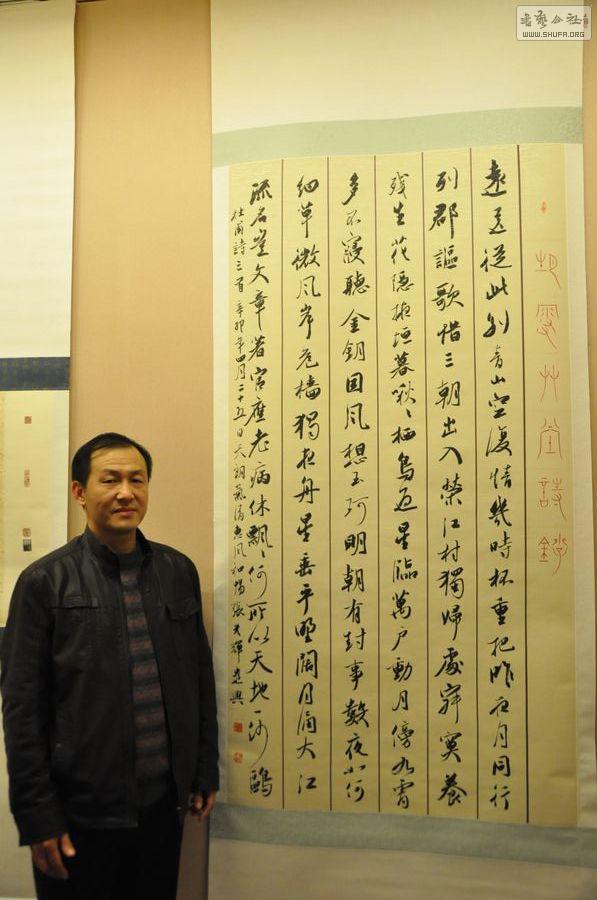 書藝公社
WWW.SHUFA.ORG
艸堂詩鈔
遠送從此別青山空復情幾時杯重把昨夜月同行
列郡謳歌惜三朝出入榮江村獨歸處寂寞養
残生花隱掖垣暮啾々栖鳥過星臨萬戶動月傍九霄
多不寢聽金鑰因風想玉珂明朝有封事數夜如何
細草微風岸危檣獨夜舟星垂平野闊月涌大江
流名豈文章著官應老病休飄々何所似天地一沙鷗
杜甫詩三首辛卯年四月二十五日天朗氣清惠風和暢張輝遣興